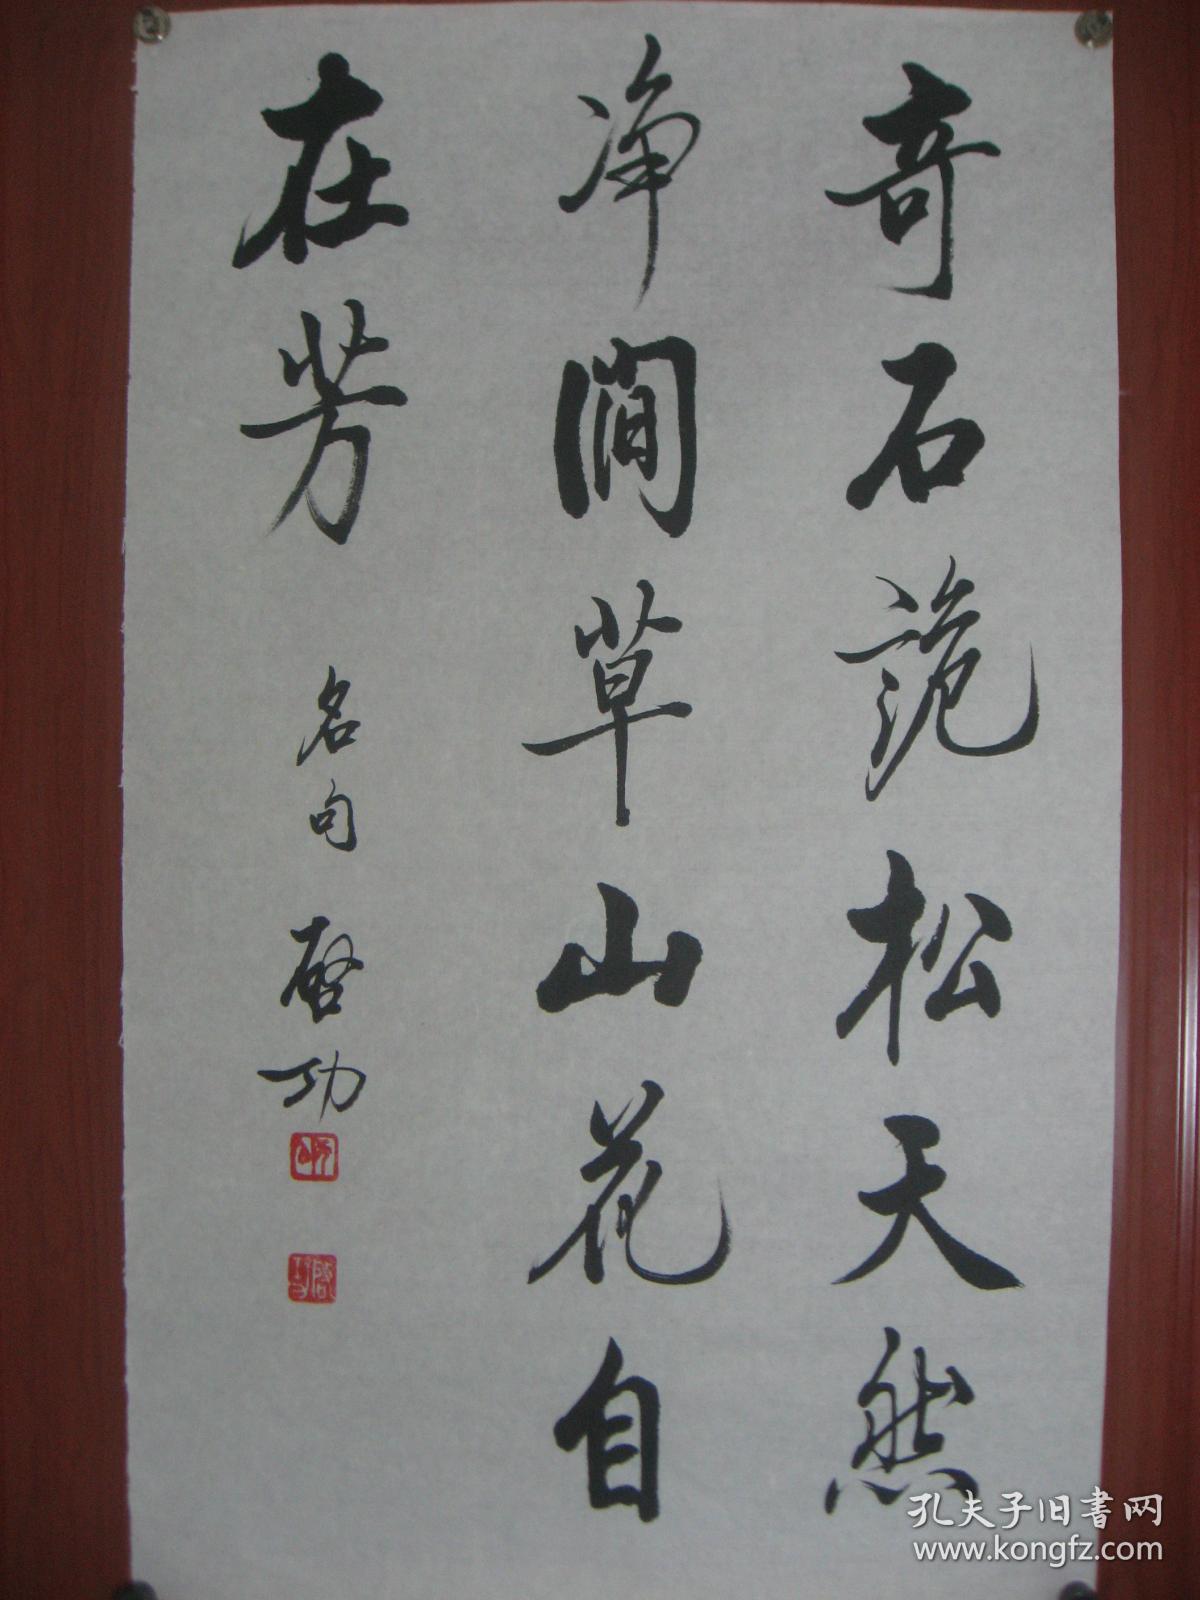 奇石诡松天然
净涧草山花自
在芳
名句 启功
孔夫子旧书网
www.kongfz.com